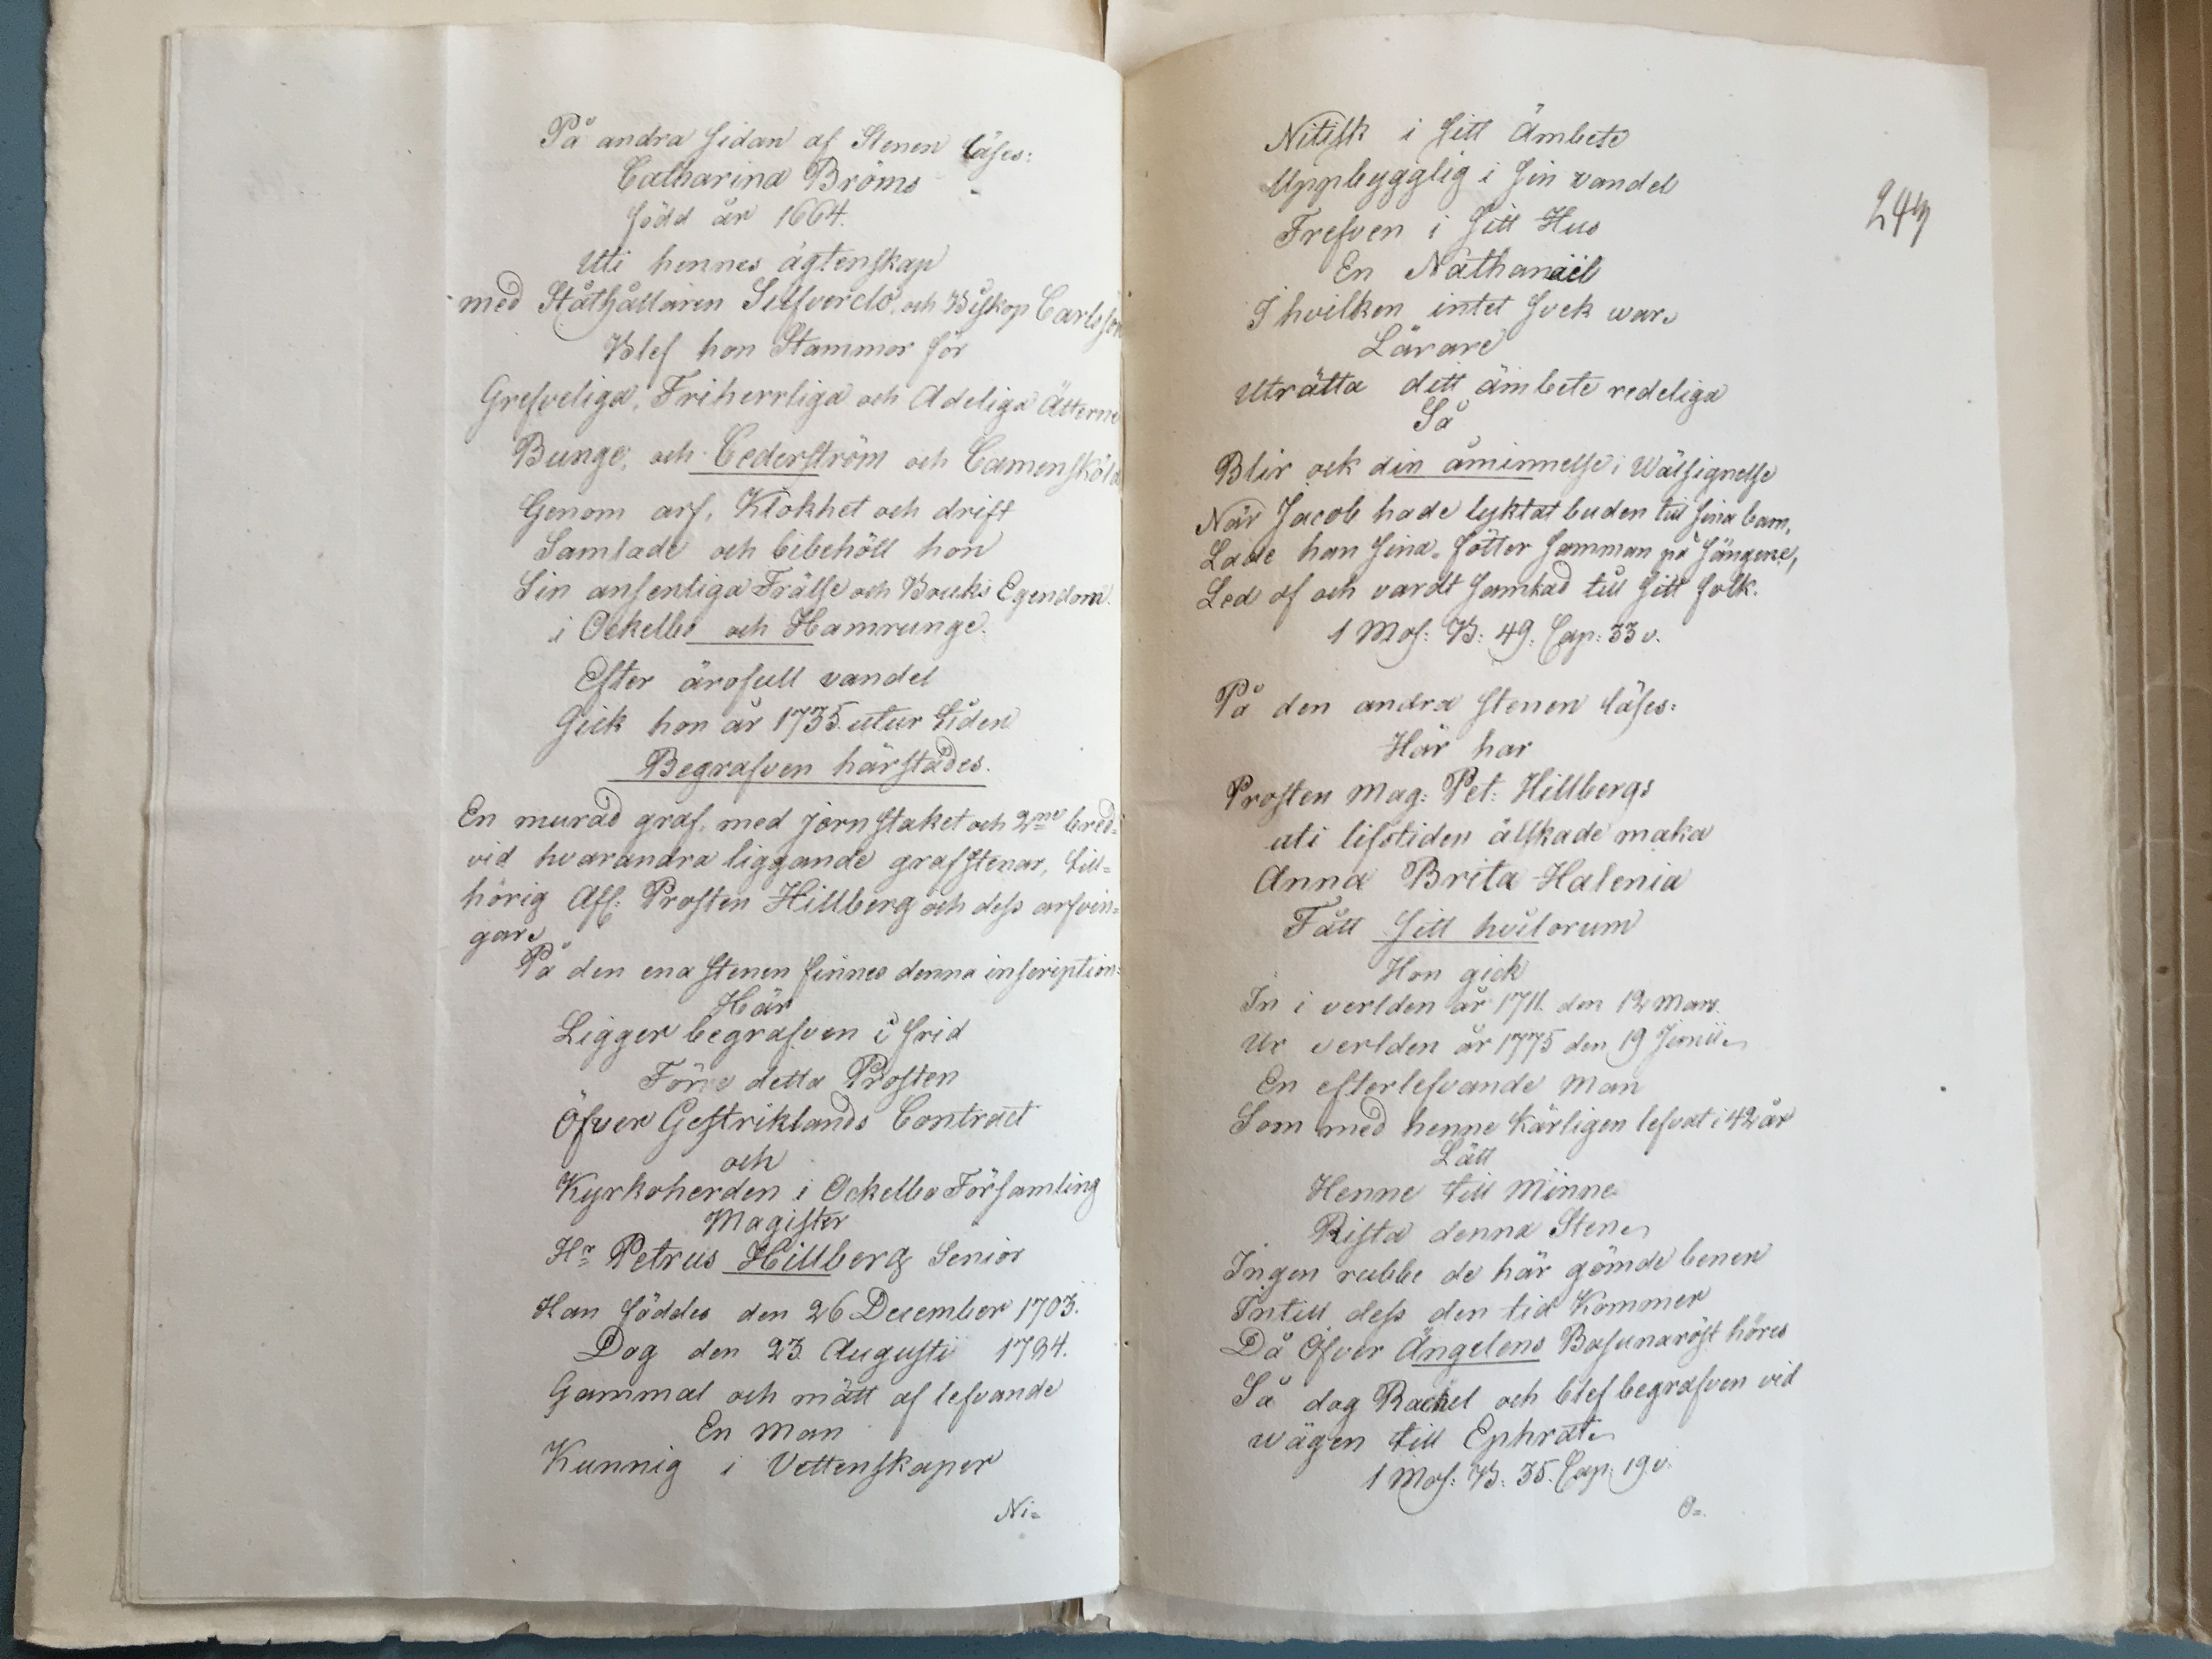 På andra sidan af Stenen läses:
Catharina Bröms
född år 1664.
Uti hennes ägtenskap
med Ståthållaren Silfverclo, och Biskop Carlsson
Blef hon Stammor för
Grefveliga, Friherrliga och Adeliga Ätterne
Bunge, och Cederström och Camensköld
Genom arf, Klokhet och drift
Samlade och bibehöll hon
Sin ansenliga Frälse och Bruks Egendom
i Ockelbo och Hamrunge.
Efter ärofull vandel
Gick hon år 1735 utur tiden
Begrafven härstädes.
En murad graf, med jern staket och 2ne bred-
vid hvarandra liggande grafstenar, till-
hörig Afl. Prosten Hillberg och dess arfvin-
gar.
På den ena stenen finnes denna inscription:
Här
Ligger begrafven i frid
Förre detta Prosten
Öfver Gestriklands Contract
och
Kyrkoherden i Ockelbo Församling
Magister
Hr Petrus Hillberg Senior
Han föddes den 26 December 1703.
Dog den 23 Augusti 1784.
Gammal och mätt af lefvande
En Man
Kunnig i Vettenskaper
Ni-
244
Nitisk i sitt Ämbete
Uppbygglig i sin vandel
Trefven i sitt Hus
En Nathanaël
I hvilken intet svek war.
Lärare
Uträtta ditt ämbete redeliga
Så
Blir ock din åminnelse i Wälsignelse
När Jacob hade lyktat buden till sina barn,
Lade han sina fötter samman på sängene,
Led af och vardt samkad till sitt folk.
1 Mos: B: 49. Cap: 33 v.
På den andra stenen läses:
Här har
Prosten Mag: Pet: Hillbergs
uti lifstiden älskade maka
Anna Brita Halenia
Fått sitt hvilorum
Hon gick
In i verlden år 1711. den 12 Mars.
Ur verlden år 1775 den 19 Junii.
En efterlefvande Man
Som med henne Kärligen lefvat i 42 år
Lätt
Henne till Minne
Rista denna Sten.
Ingen rubbe de här gömde benen
Intill dess den tid Kommer
Då Öfver Ängelens Basunaröst höres
Så dog Rachel och blef begrafven vid
wägen till Ephrat.
1 Mos: B: 35. Cap: 19 v.
O-